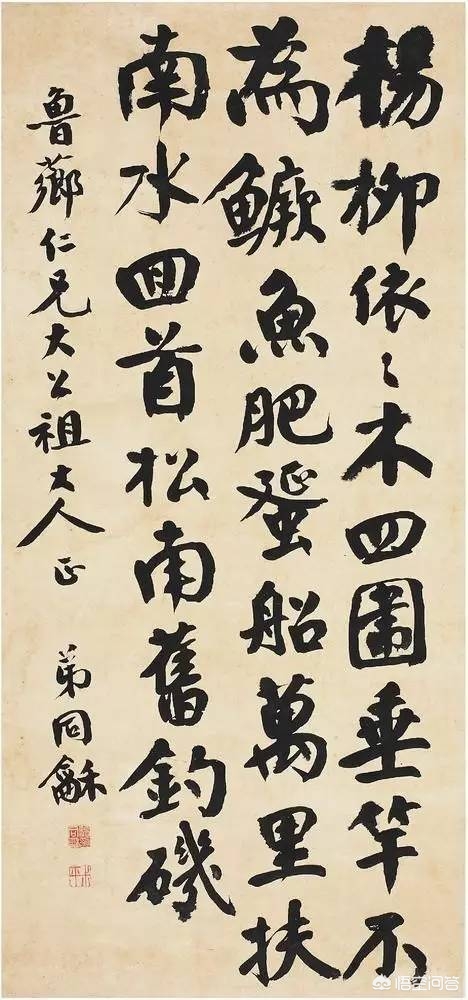 楊柳依〻木四圍垂竿不
為鱖魚肥蜑船萬里扶
南水回首松南舊釣磯
魯薌仁兄大公祖大人正 弟同龢
悟空问答